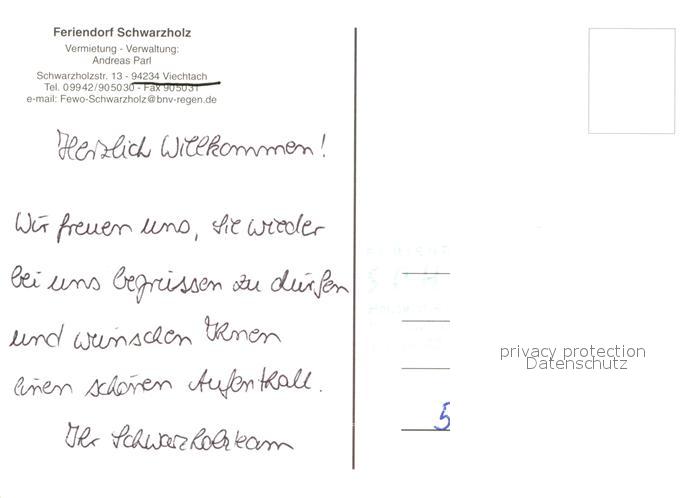 Feriendorf Schwarzholz
Vermietung - Verwaltung:
Andreas Parl
Schwarzholzstr. 13 - 94234 Viechtach
Tel. 09942/905030 - Fax 905031
e-mail: Fewo-Schwarzholz@bnv-regen.de
Herzlich Willkommen!
Wir freuen uns, Sie wieder
bei uns begrüssen zu dürfen
und wünschen Ihnen
einen schönen Aufenthalt.
Ihr Schwarzholzteam
privacy protection
Datenschutz
5